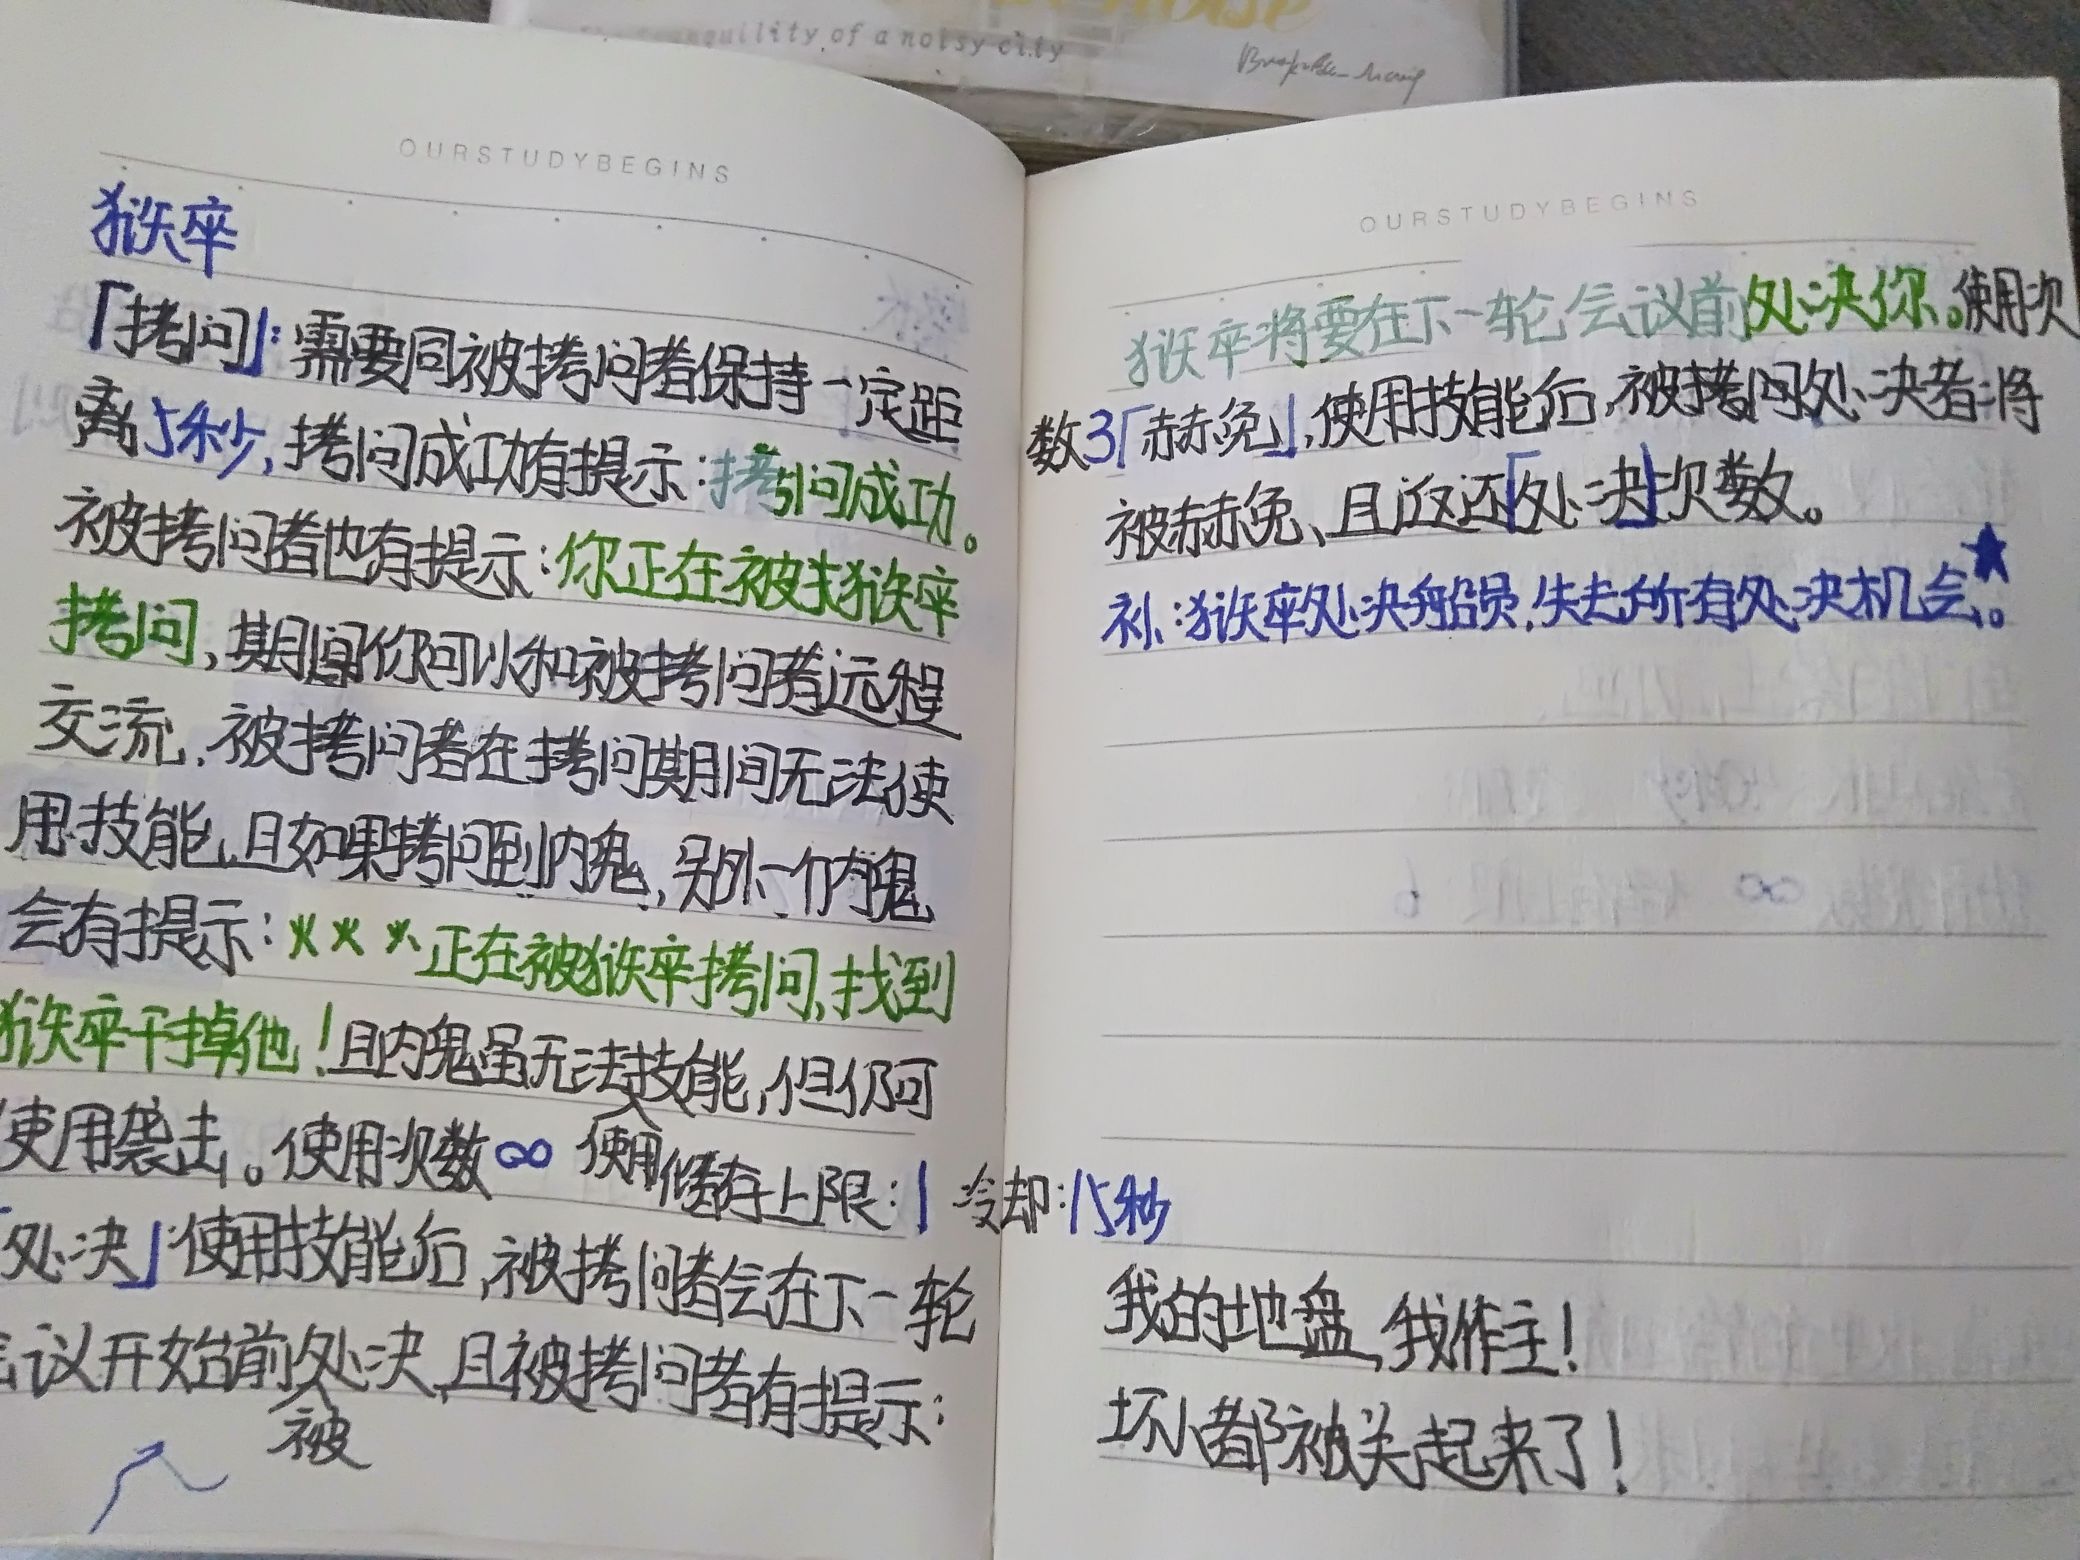 the tranquility of a noisy city
OURSTUDYBEGINS
狱卒
「拷问」：需要同被拷问者保持一定距
离5秒，拷问成功有提示：拷问成功。
被拷问者也有提示：你正在被狱卒
拷问，期间你可以和被拷问者远程
交流，被拷问者在拷问期间无法使
用技能，且如果拷问到内鬼，另外一个内鬼
会有提示：×××正在被狱卒拷问，找到
狱卒干掉他！且内鬼虽无法使用技能，但仍可
使用袭击。使用次数∞ 储存上限：1 冷却：15秒
「处决」：使用技能后，被拷问者会在下一轮
会议开始前被处决，且被拷问者有提示：
OURSTUDYBEGINS
狱卒将要在下一轮会议前处决你。使用次
数3「赫免」，使用技能后，被拷问处决者将
被赫免、且返还「处决」次数。
补：狱卒处决船员，失去所有处决机会。★
我的地盘，我作主！
坏小都被关起来了！